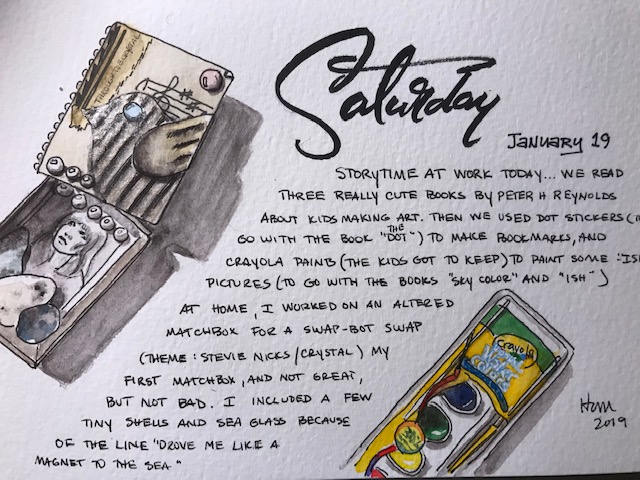 Saturday
January 19
STORYTIME AT WORK TODAY... WE READ
THREE REALLY CUTE BOOKS BY PETER H REYNOLDS
ABOUT KIDS MAKING ART. THEN WE USED DOT STICKERS (
GO WITH THE BOOK "THE DOT") TO MAKE BOOKMARKS, AND
CRAYOLA PAINTS (THE KIDS GOT TO KEEP) TO PAINT SOME "ISH
PICTURES (TO GO WITH THE BOOKS "SKY COLOR" AND "ISH")
AT HOME, I WORKED ON AN ALTERED
MATCHBOX FOR A SWAP-BOT SWAP
(THEME: STEVIE NICKS/CRYSTAL) MY
FIRST MATCHBOX, AND NOT GREAT,
BUT NOT BAD. I INCLUDED A FEW
TINY SHELLS AND SEA GLASS BECAUSE
OF THE LINE "DROVE ME LIKE A
MAGNET TO THE SEA"
Crayola
2019